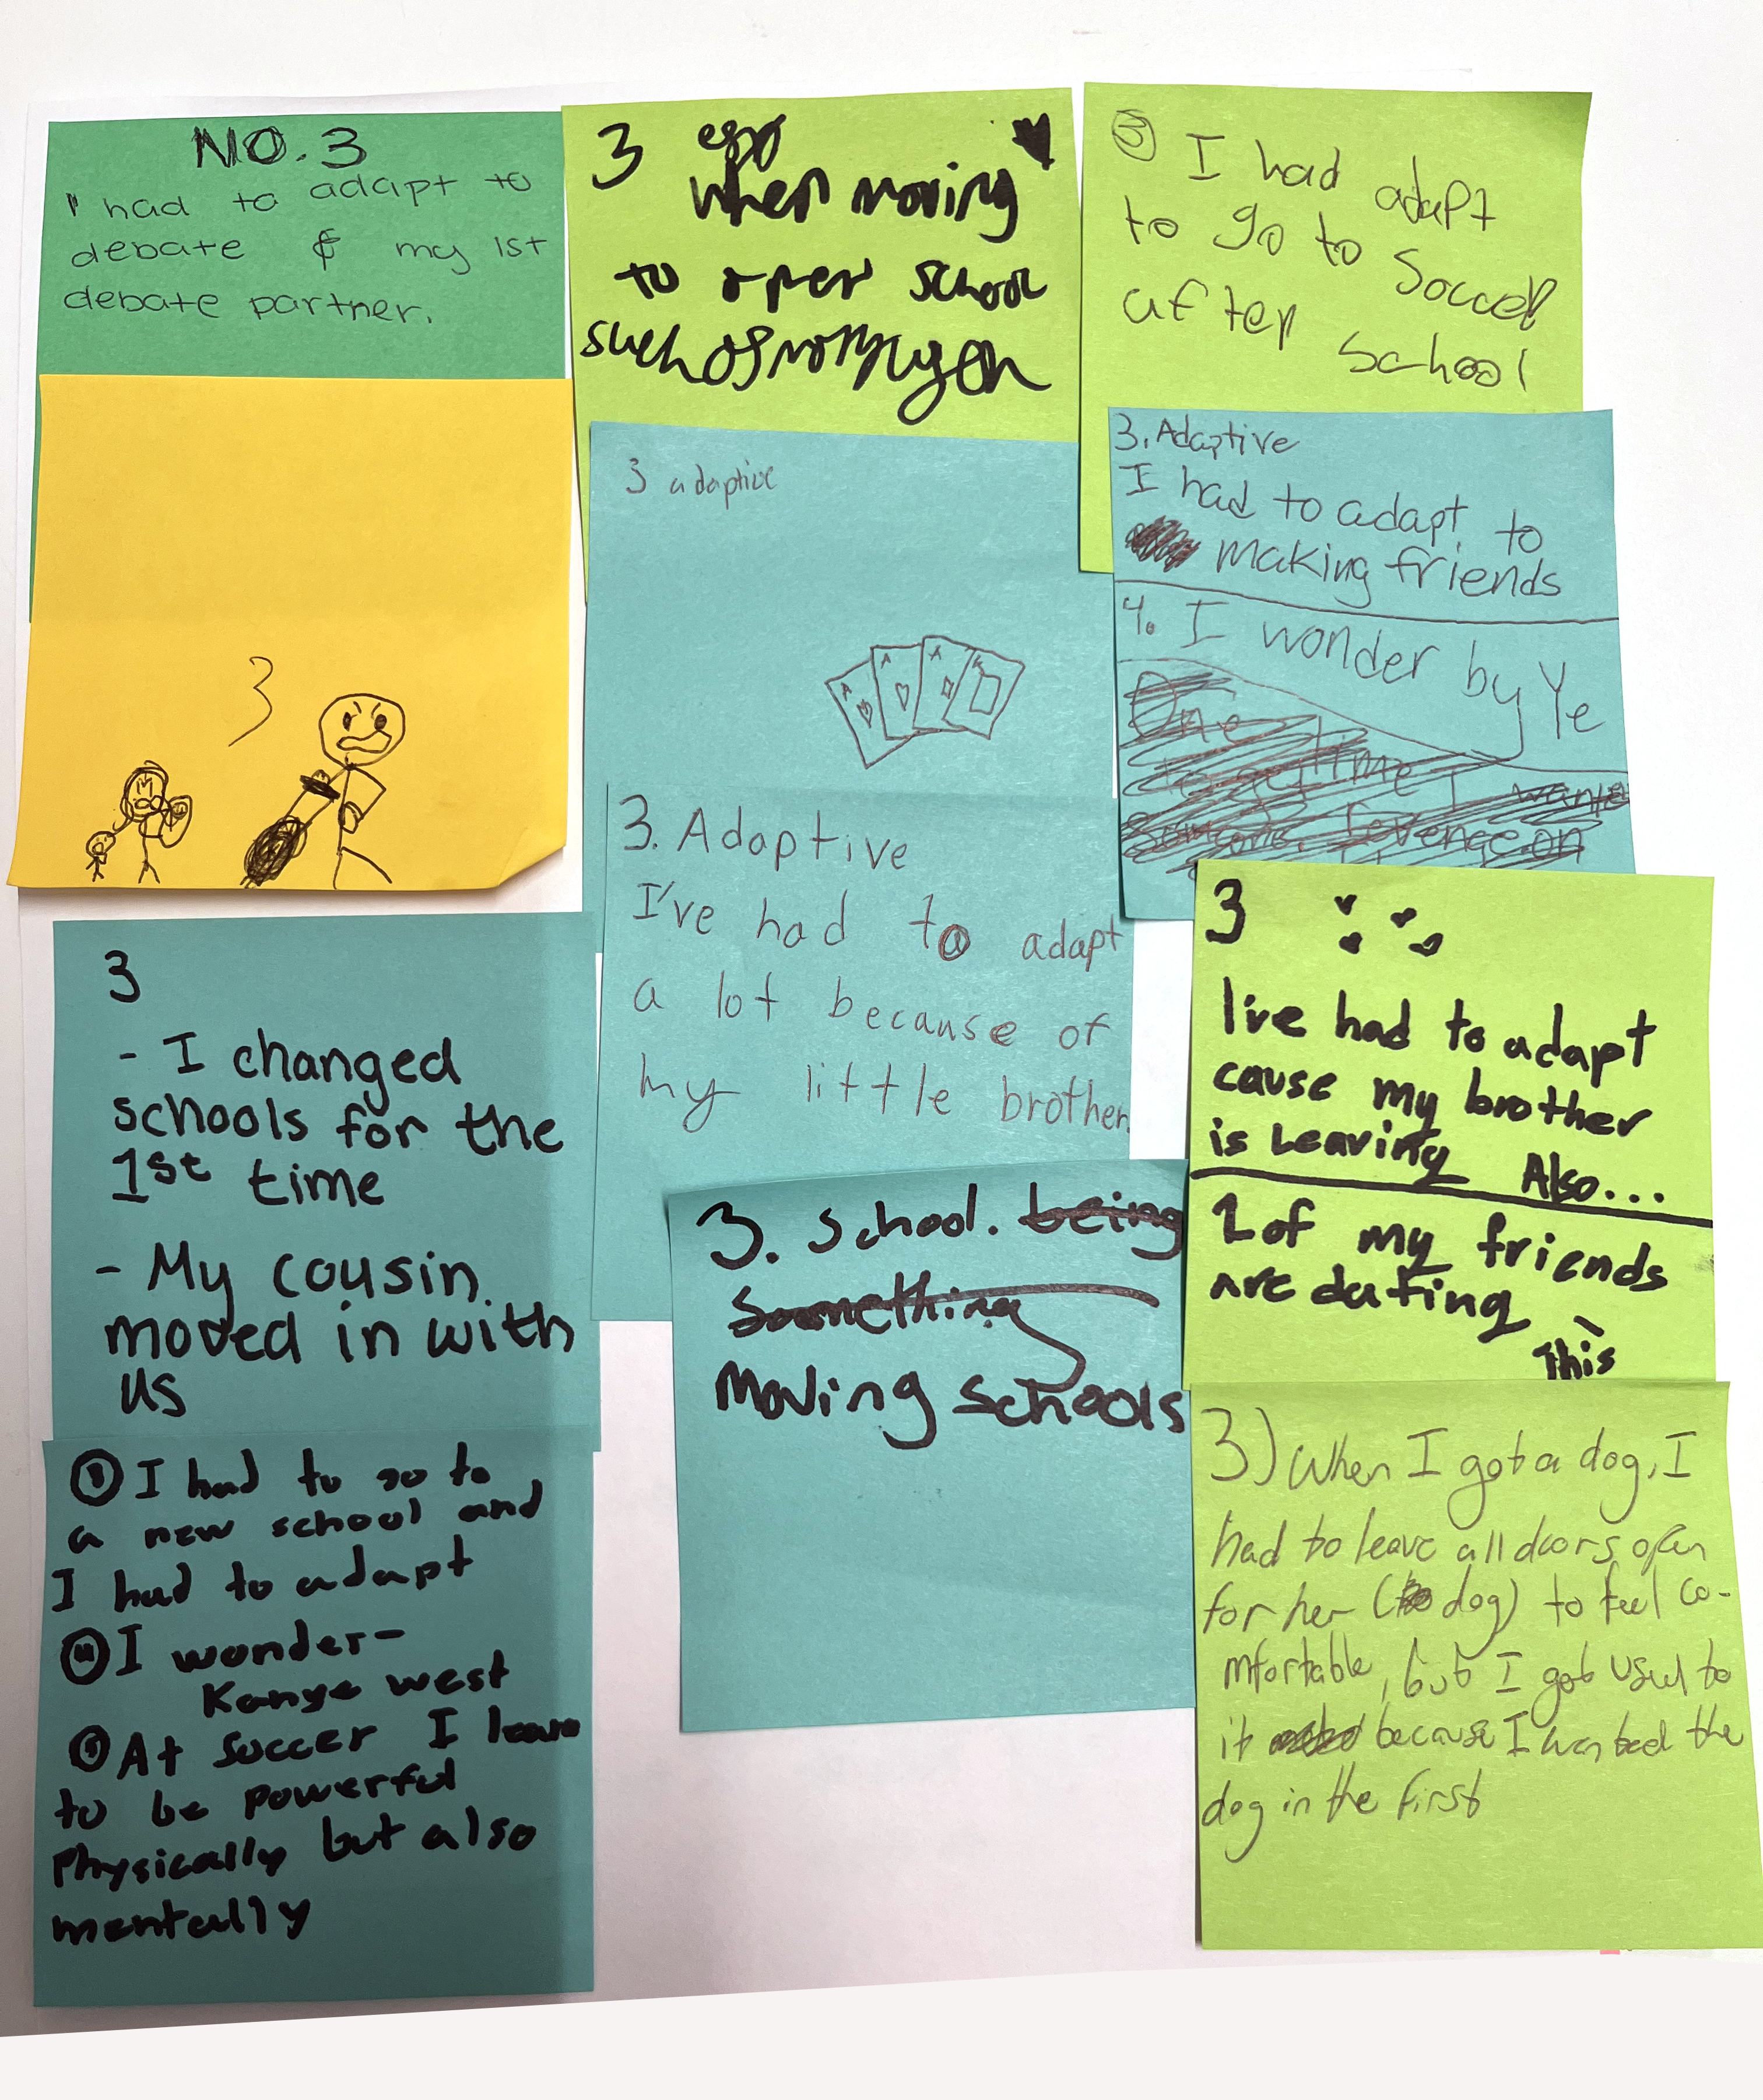 NO. 3
I had to adapt to
debate & my 1st
debate partner.
3
3
when moving
to school
such
3 I had adapt
to go to Soccer
after school
3 adaptive
A
A
A
K
3. Adaptive
I had to adapt to
making friends
4. I wonder by Ye
One
time I wanted
revenge on
3. Adaptive
I've had to adapt
a lot because of
my little brother.
3
- I changed
schools for the
1st time
- My cousin
moved in with
us
3
I've had to adapt
cause my brother
is Leaving Also...
2 of my friends
are dating
This
3. School. being
Something
Moving schools
3 I had to go to
a new school and
I had to adapt
4 I wonder-
Kanye west
5 At soccer I learn
to be powerful
Physically but also
mentally
3) When I got a dog, I
had to leave all doors open
for her (dog) to feel co-
mfortable, but I got used to
it because I wanted the
dog in the first